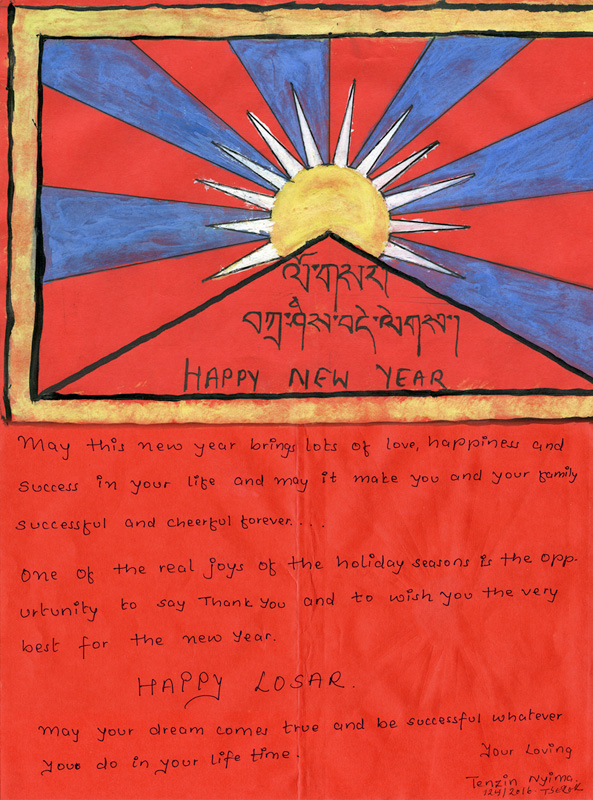 ལོ་གསར
བཀྲ་ཤིས་བདེ་ལེགས།
HAPPY NEW YEAR
May this new year brings lots of love, happiness and
success in your life and may it make you and your family
successful and cheerful forever....
One of the real joys of the holiday seasons is the opp.
urtunity to say Thank you and to wish you the very
best for the new Year.
HAPPY LOSAR.
May your dream comes true and be successful whatever
you do in your life time.
Your Loving
Tenzin Nyima.